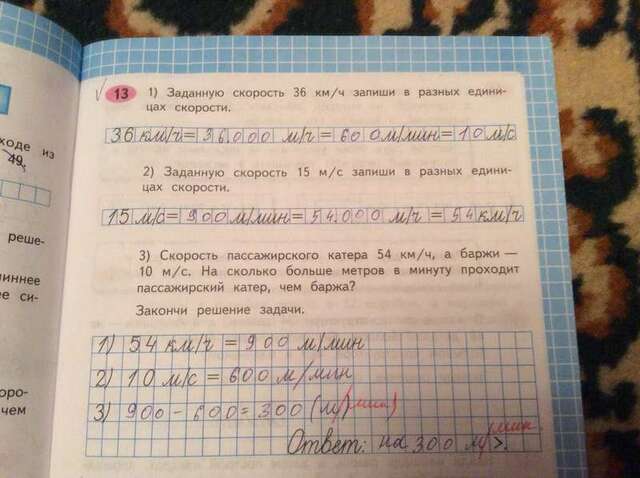 ходе из
49,
реше-
иннее
е си-
оро-
чем
13 1) Заданную скорость 36 км/ч запиши в разных едини-
цах скорости.
36 км/ч = 36000 м/ч = 600 м/мин = 10 м/с
2) Заданную скорость 15 м/с запиши в разных едини-
цах скорости.
15 м/с = 900 м/мин = 54000 м/ч = 54 км/ч
3) Скорость пассажирского катера 54 км/ч, а баржи —
10 м/с. На сколько больше метров в минуту проходит
пассажирский катер, чем баржа?
Закончи решение задачи.
1) 54 км/ч = 900 м/мин
2) 10 м/с = 600 м/мин
3) 900 - 600 = 300 (м/мин)
Ответ: на 300 м/мин >.